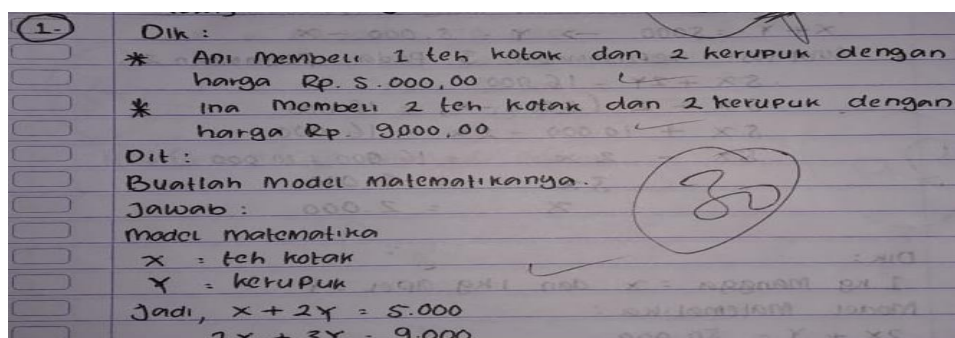 1.) Dik :
* Ani membeli 1 teh kotak dan 2 kerupuk dengan
harga Rp. 5.000,00
* Ina membeli 2 teh kotak dan 2 kerupuk dengan
harga Rp. 9000,00
Dit :
Buatlah model matematikanya.
30
Jawab :
Model matematika
x = teh kotak
Y = kerupuk
Jadi, x + 2Y = 5.000
9.000